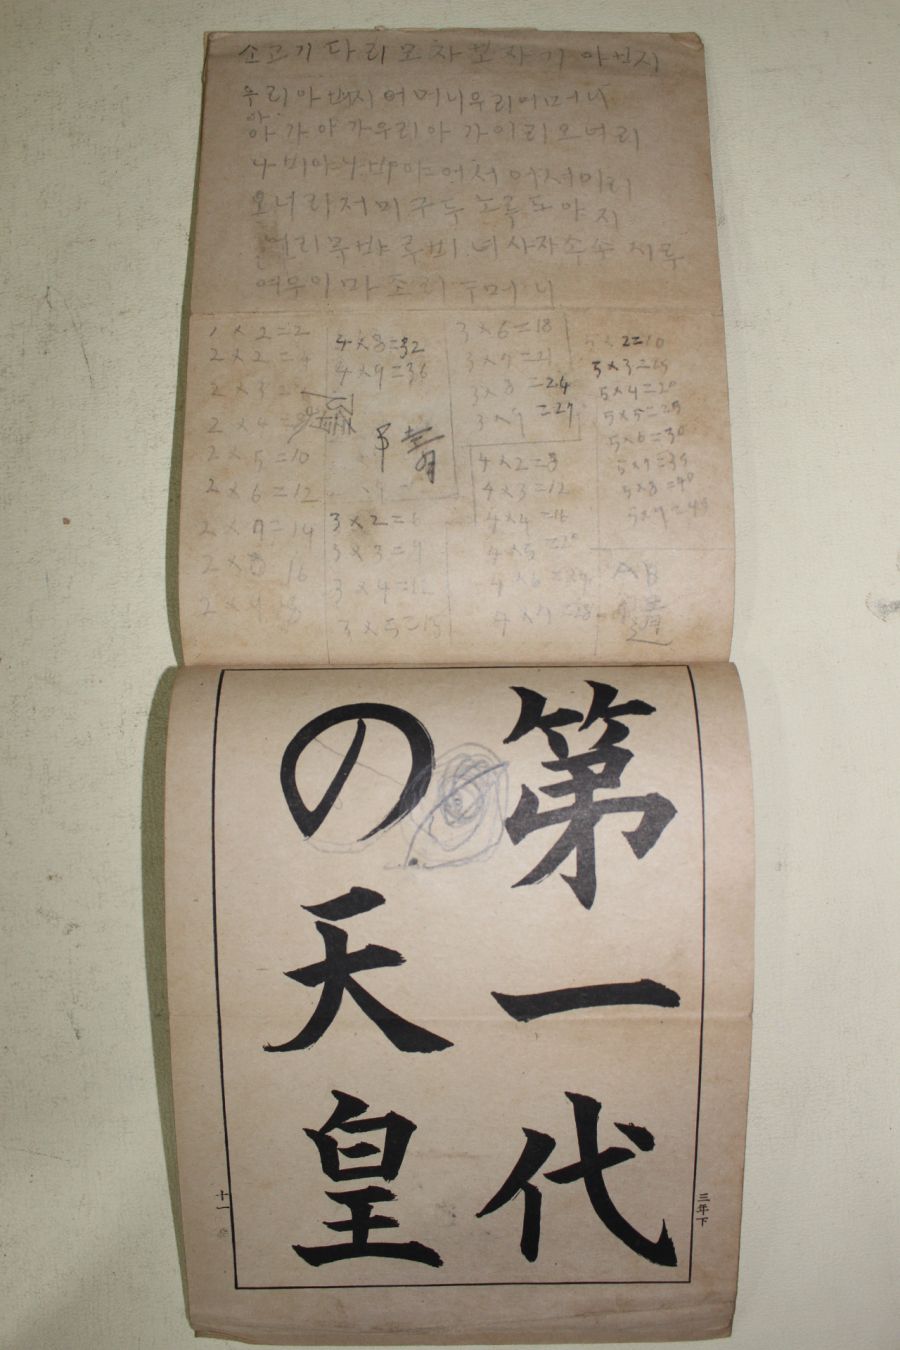 소고기다리모자모자기아버지
우리아버지어머니우리어머니
아
아가야가우리아가이리오너라
나비야나비야어서어서이리
오너라저미구두노루도야지
여우이마조리주머니
1×2=2
2×2=4
2×3=
2×4=
2×5=10
2×6=12
2×7=14
2×8 16
2×9 18
4×8=32
4×9=36
3×2=6
3×3=9
3×4=12
3×5=15
3×6=18
3×7=21
3×8=24
3×9=27
4×2=8
4×3=12
4×4=16
4×5=20
4×6=24
4×7=28
5×2=10
5×3=15
5×4=20
5×5=25
5×6=30
5×7=35
5×8=40
5×9=45
AB
第一代
の天皇
三年下
十一